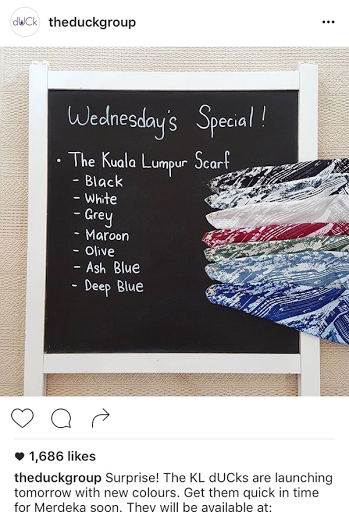 dUCk
theduckgroup
Wednesday's Special!
• The Kuala Lumpur Scarf
- Black
- White
- Grey
- Maroon
- Olive
- Ash Blue
- Deep Blue
1,686 likes
theduckgroup Surprise! The KL dUCks are launching
tomorrow with new colours. Get them quick in time
for Merdeka soon. They will be available at: